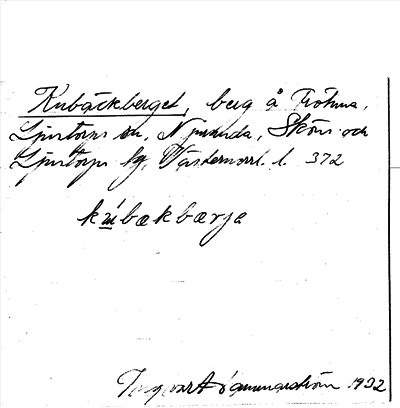 Kubäckberget, berg å Fröhna,
Ljustorps sn, Njurunda, Sköns och
Ljustorps tg, Västernorrl. l. 372
kʉ́bækbærjə
Ingvart Hammarström 1932